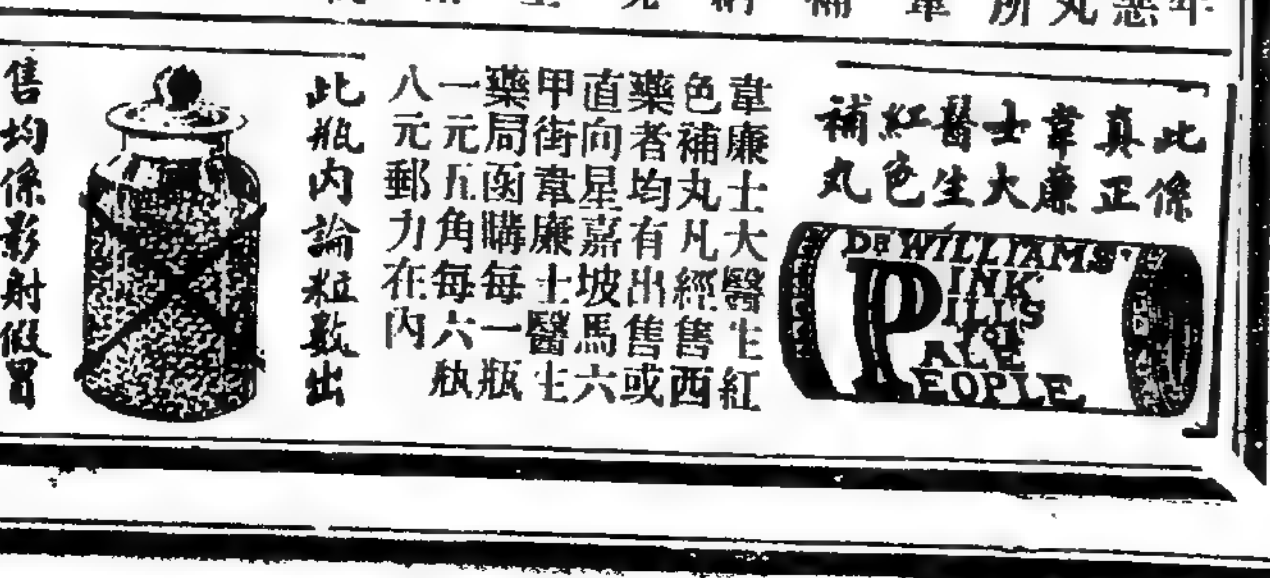 丸
所
此係
真正
韋廉
士大
醫生
紅色
補丸
DR WILLIAMS'
PINK
PILLS
FOR
PALE
PEOPLE
韋廉士大醫生紅
色補丸凡經售西
藥者均有出售或
直向星嘉坡馬六
甲街韋廉士醫生
藥局函購每一瓶
一元五角每六瓶
八元郵力在內
此瓶內論粒數出
售均係影射假冒